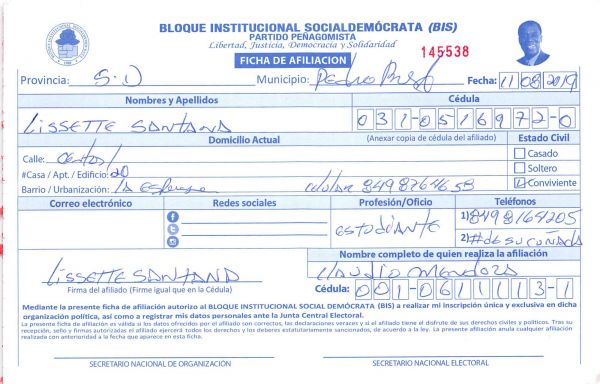 BLOQUE INSTITUCIONAL SOCIALDEMÓCRATA (BIS)
PARTIDO PEÑAGOMISTA
Libertad, Justicia, Democracia y Solidaridad
FICHA DE AFILIACION
145538
Provincia: S.D Municipio: Pedro Brand Fecha: 11/08/2019
Nombres y Apellidos Cédula
Lissette Santana 031-0516972-0
Domicilio Actual (Anexar copia de cédula del afiliado) Estado Civil
Calle: Casado
#Casa / Apt. / Edificio: 20 Soltero
Barrio / Urbanización: La celular 8498764658 Conviviente
Correo electrónico Redes sociales Profesión/Oficio Teléfonos
estudiante 1) 8498164205
2) # de su cuñada
Nombre completo de quien realiza la afiliación
Lissette Santana Claudio Mendoza
Firma del afiliado (Firme igual que en la Cédula) Cédula: 001-0611113-1
Mediante la presente ficha de afiliación autorizo al BLOQUE INSTITUCIONAL SOCIAL DEMÓCRATA (BIS) a realizar mi inscripción única y exclusiva en dicha
organización política, así como a registrar mis datos personales ante la Junta Central Electoral.
La presente ficha de afiliación es válida si los datos ofrecidos por el afiliado son correctos, las declaraciones veraces y si el afiliado tiene el disfrute de sus derechos civiles y políticos. Tras su
recepción, sello y firmas autorizadas el afiliado ejercerá todos los derechos y los deberes estatutariamente sancionados, de acuerdo a la ley. La presente afiliación anula cualquier afiliación
realizada con anterioridad a la fecha que aparece en esta ficha.
SECRETARIO NACIONAL DE ORGANIZACIÓN SECRETARIO NACIONAL ELECTORAL